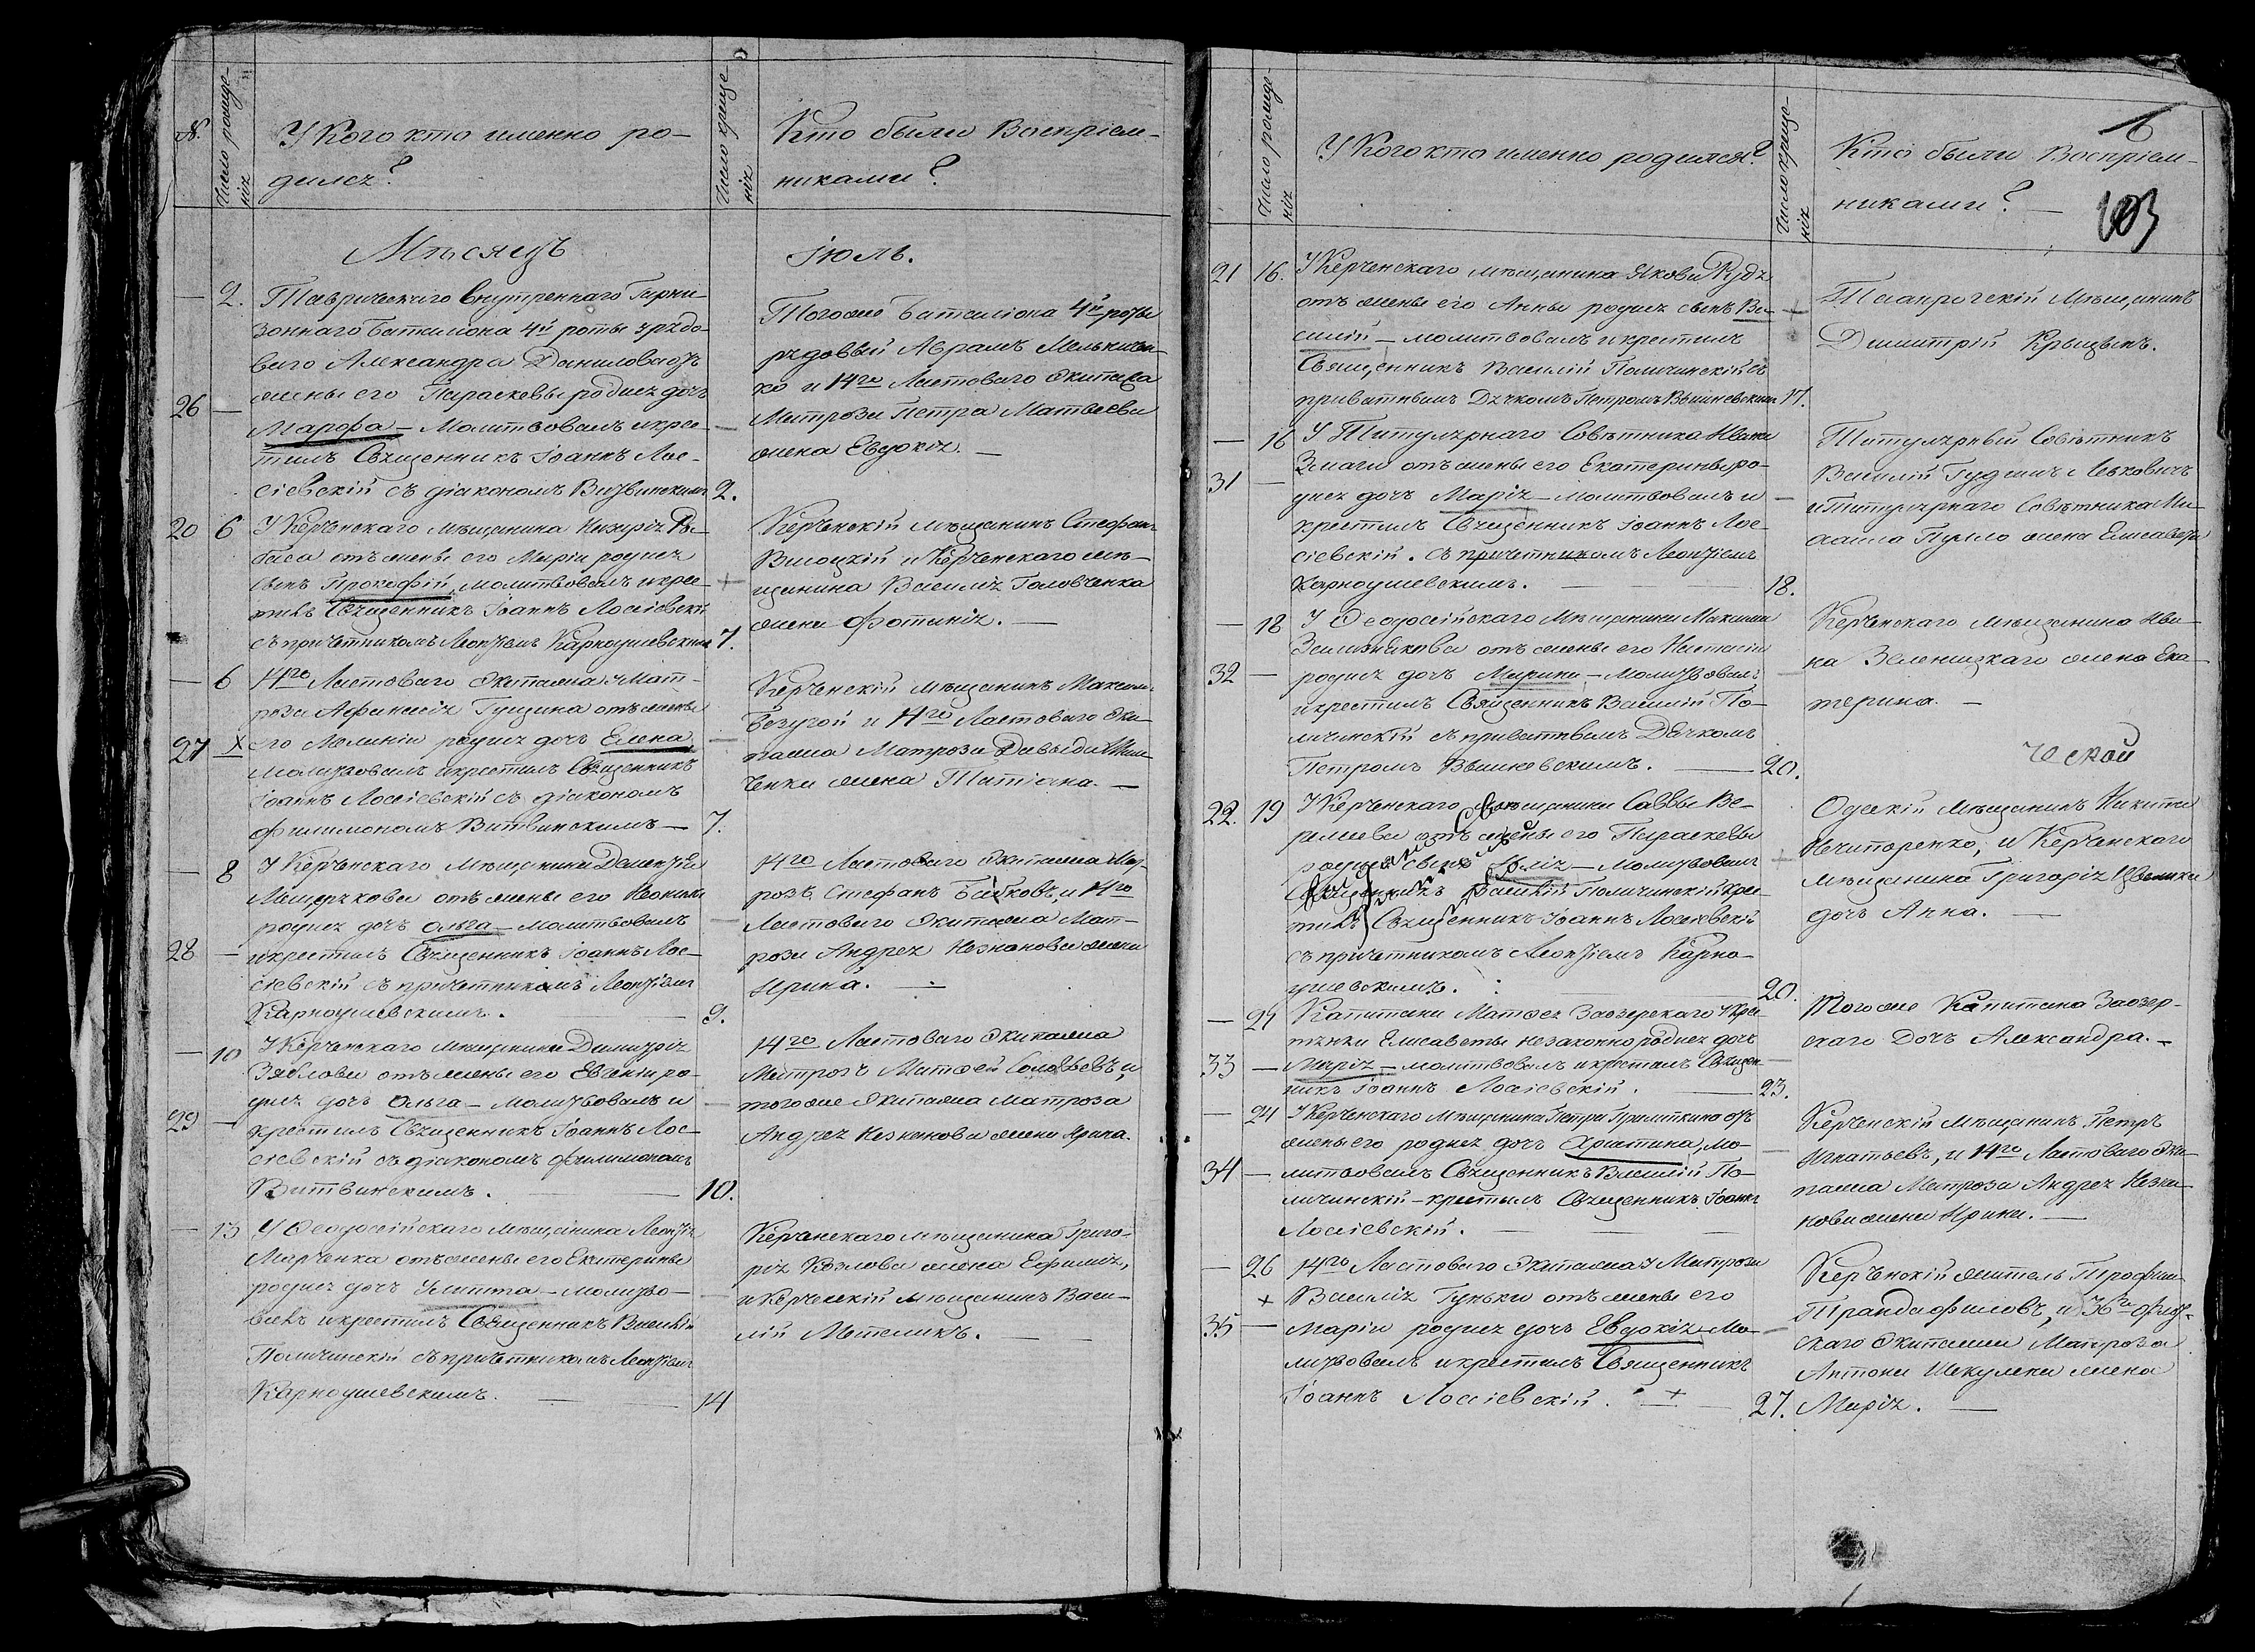 №.
Число рожде-
нія
У Кого кто именно ро-
дился?
Число креще-
нія
Кто были Воспріем-
никами?
Мѣсяцъ
Іюль.
— 2. Таврическаго внутренняго Гарни-
зоннаго Баталіона 4й роты у рядо-
ваго Александра Данилова отъ
жены его Параскевы родися дочь
26 —
Марфа — Молитвовалъ и крес-
тилъ Священникъ Іоаннъ Лос-
сіевскій съ діакономъ Витвинскимъ 2.
Тогоже Баталіона 4й роты
рядовый Абрамъ Мельничен-
ко и 14го Ластоваго Экипажа
Матроза Петра Матвеева
жена Евдокія. —
20 6 У Керченскаго мѣщанина
баса отъ жены его Маріи родися
сынъ Прокофій, молитвовалъ и крес-
тилъ Священникъ Іоаннъ Лоссіевскій
съ причетникомъ Леонтіемъ Карноушевскимъ 7.
Керченскій мѣщанинъ Стефанъ
Высоцкій и Керченскаго мѣ-
щанина Василія Головченка
жена Фотинія. —
— 6 14го Ластоваго Экипажа у Мат-
роза Афанасія Гущина отъ жены
27 х его Меланіи родися дочь Елена,
Молитвовалъ и крестилъ Священникъ
Іоаннъ Лоссіевскій съ діакономъ
Филимономъ Витвинскимъ — 7.
Керченскій мѣщанинъ Максимъ
Безугой и 14го Ластоваго Эки-
пажа Матроза Давыда
ченки жена Татіана. —
— 8 У Керченскаго мѣщанина Дементія
Мещерякова отъ жены его
родися дочь Ольга — молитвовалъ
28 — и крестилъ Священникъ Іоаннъ Лос-
сіевскій съ причетникомъ Леонтіемъ
Карноушевскимъ. — 9.
14го Ластоваго Экипажа Мат-
розъ Стефанъ Байковъ, и 14го
Ластоваго Экипажа Мат-
роза Андрея Незнанова жена
Ирина. —
— 10 У Керченскаго мѣщанина Димитрія
Зяблова отъ жены его Евгеніи ро-
дися дочь Ольга — Молитвовалъ и
29 — крестилъ Священникъ Іоаннъ Лос-
сіевскій съ діакономъ Филимономъ
Витвинскимъ. — 10.
14го Ластоваго Экипажа
Матрозъ Матфей Соловьевъ, и
тогоже Экипажа Матроза
Андрея Незнанова жена Ирина.
— 13 У Феодосійскаго мѣщанина Леонтія
Марченка отъ жены его Екатерины
родися дочь Улитта — молитво-
валъ и крестилъ Священникъ Василій
Поличинскій съ причетникомъ Леонтіемъ
Карноушевскимъ. — 14
Керченскаго мѣщанина Григо-
рія Козлова жена Ефимія,
и Керченскій мѣщанинъ Васи-
лій Метеликъ. —
Число рожде-
нія
У Кого кто именно родился?
Число креще-
нія
Кто были Воспріем-
никами? —
6
103
21 16. У Керченскаго мѣщанина Якова Рудя
отъ жены его Анны родися сынъ Ва-
силій — молитвовалъ и крестилъ
Священникъ Василій Поличинскій съ
приватнымъ Дячкомъ Петромъ Вышневскимъ 17.
Таганрогскій Мѣщанинъ
Димитрій Крыцынъ.
— 16 У Титулярнаго Совѣтника Ивана
Змаги отъ жены его Екатерины ро-
31 — дися дочь Марія — Молитвовалъ и
крестилъ Священникъ Іоаннъ Лос-
сіевскій. съ причетникомъ Леонтіемъ
Карноушевскимъ. — 18.
Титулярный Совѣтникъ
Василій Гудимъ Левковичъ
и Титулярнаго Совѣтника Ми-
хаила Пулло жена Елисавета
— 18 У Феодосійскаго Мѣщанина Максима
Зильникова отъ жены его Настасіи
32 — родися дочь Марина — Молитвовалъ
и крестилъ Священникъ Василій По-
личинскій съ приватнымъ Дячкомъ
Петромъ Вышневскимъ. — 20.
Керченскаго мѣщанина Ива-
на Зеленицкаго жена Ека-
терина. —
22. 19 У Керченскаго мѣщанина Саввы Ве-
ремеева отъ жены его Параскевы
родися сынъ Илія — Молитвовалъ
Священникъ Василій Поличинскій крес-
тилъ Священникъ Іоаннъ Лоссіевскій
съ причетникомъ Леонтіемъ Карно-
ушевскимъ. — 20.
ческой
Одескій мѣщанинъ Никита
Нечипоренко, и Керченскаго
мѣщанина Григорія
дочь Анна. —
— 21 Капитана Матфея Заозерскаго у Крес-
тьянки Елисаветы незаконно родися дочь
33 — Марія — молитвовалъ и крестилъ Священ-
никъ Іоаннъ Лоссіевскій. — 23.
Тогоже Капитана Заозер-
скаго Дочь Александра. —
— 24 У Керченскаго Мѣщанина Петра отъ
жены его родися дочь Христина, мо-
34 — литвовалъ Священникъ Василій По-
личинскій — крестилъ Священникъ Іоаннъ
Лоссіевскій. —
Керченскій Мѣщанинъ Петръ
Игнатьевъ, и 14го Ластоваго Эки-
пажа Матроза Андрея Незна-
нова жена Ирина. —
— 26 14го Ластоваго Экипажа у Матроза
х Василія Гуньки отъ жены его
35 — Маріи родися дочь Евдокія — Мо-
литвовалъ и крестилъ Священникъ
Іоаннъ Лоссіевскій. — 27.
Керченскій житель Трофимъ
Трандафиловъ, и 36го Флот-
скаго Экипажа Матроза
Антона Шекулека жена
Марія. —